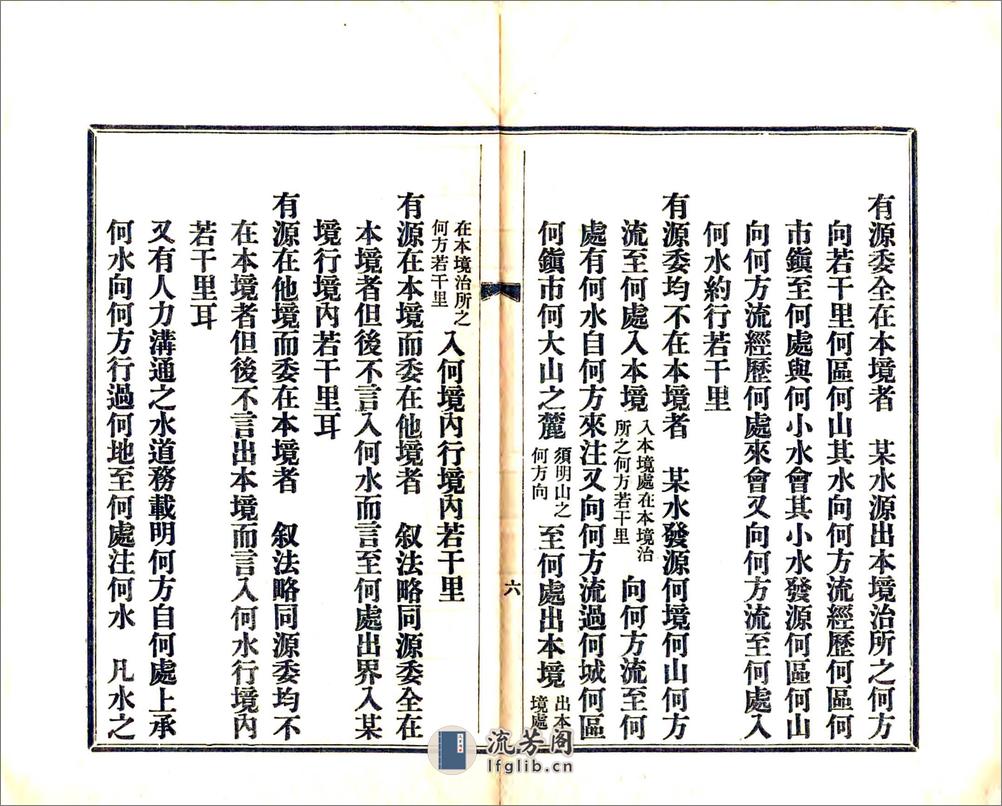 有源委全在本境者　某水源出本境治所之何方
向若干里何區何山其水向何方流經歷何區何
市鎮至何處與何小水會其小水發源何區何山
向何方流經歷何處來會又向何方流至何處入
何水約行若干里
有源委均不在本境者　某水發源何境何山何方
流至何處入本境入本境處在本境治所之何方若干里向何方流至何
處有何水自何方來注又向何方流過何城何區
何鎮市何大山之麓須明山之何方向至何處出本境出本境處
六
在本境治所之何方若干里入何境內行境內若干里
有源在本境而委在他境者　叙法略同源委全在
本境者但後不言入何水而言至何處出界入某
境行境內若干里耳
有源在他境而委在本境者　叙法略同源委均不
在本境者但後不言出本境而言入何水行境內
若干里耳
又有人力溝通之水道務載明何方自何處上承
何水向何方行過何地至何處注何水　凡水之
流芳阁
lfglib.cn